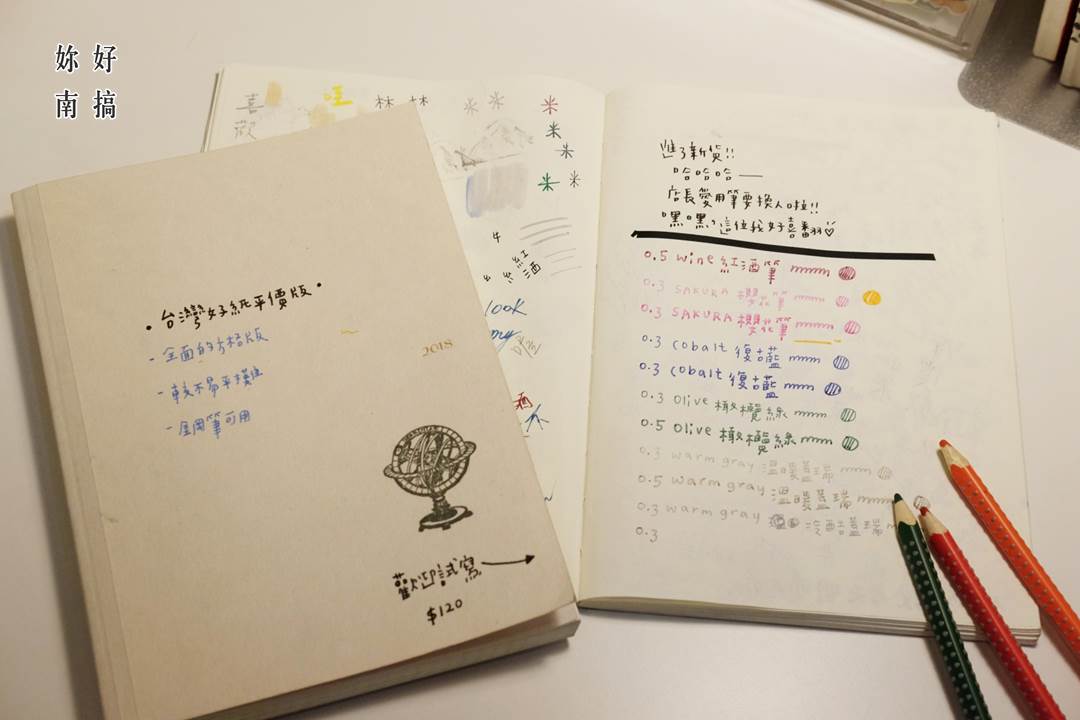 妳好
南搞
·台灣好紙平價版·
- 全面的方格版
- 較不易平攤
- 鋼筆可用
2018
歡迎試寫
$120
喜歡
哇
林 林
米 米 米
米
米
米 米
4
紅酒
look
酒
進了新貨!!
哈哈哈——
店長愛用筆要換人啦!!
嘿嘿,這位我好喜翻♡
0.5 wine 紅酒筆
0.3 SAKURA 櫻花筆
0.3 SAKURA 櫻花筆
0.3 cobalt 復古藍
0.3 cobalt 復古藍
0.3 Olive 橄欖綠
0.5 Olive 橄欖綠
0.3 warm gray 溫暖蓋瑞
0.5 warm gray 溫暖蓋瑞
0.3 warm gray 冷酷蓋瑞
0.3